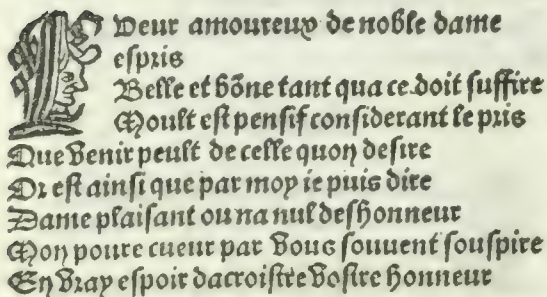 Cueur amoureux de noble dame
espris
Belle et bõne tant qua ce doit suffire
Moult est pensif considerant le pris
Que venir peult de celle quon desire
Or est ainsi que par moy ie puis dire
Dame plaisant ou na nul deshonneur
Mon poure cueur par vous souuent souspire
En vray espoir dacroistre vostre honneur